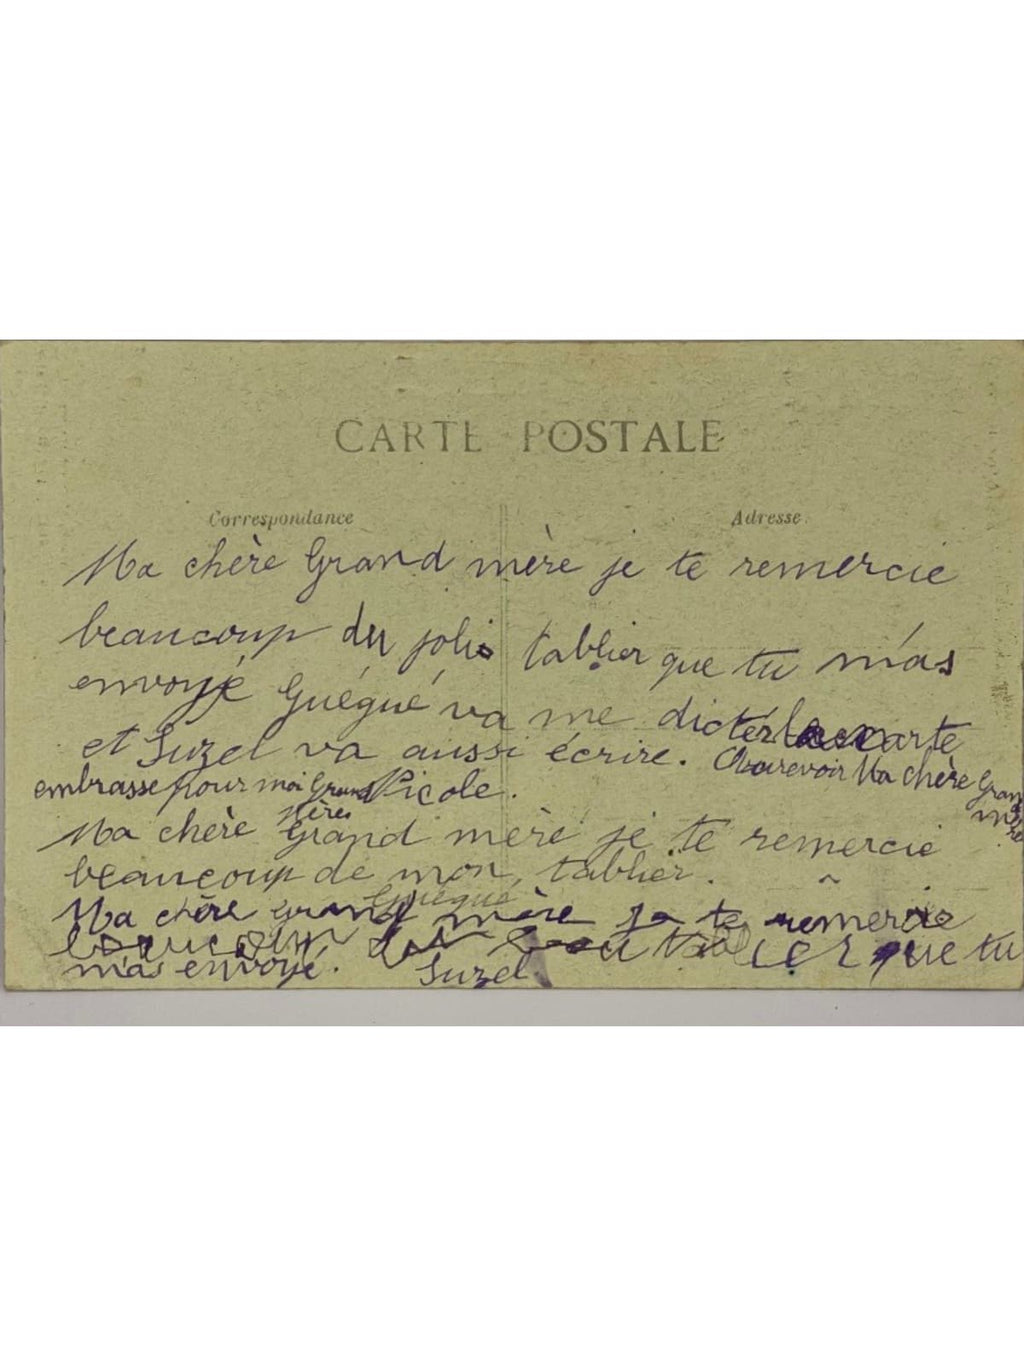 CARTE POSTALE
Correspondance
Adresse
Ma chère Grand mère je te remercie
beaucoup du joli tablier que tu m'as
envoyé Guégué va me dicter la carte
et Suzel va aussi écrire. Au revoir Ma chère Grand mère
embrasse pour moi Grand Père Nicole.
Ma chère Grand mère je te remercie
beaucoup de mon tablier.
Guégué
Ma chère grand mère je te remercie
beaucoup du que tu
m'as envoyé. Suzel.